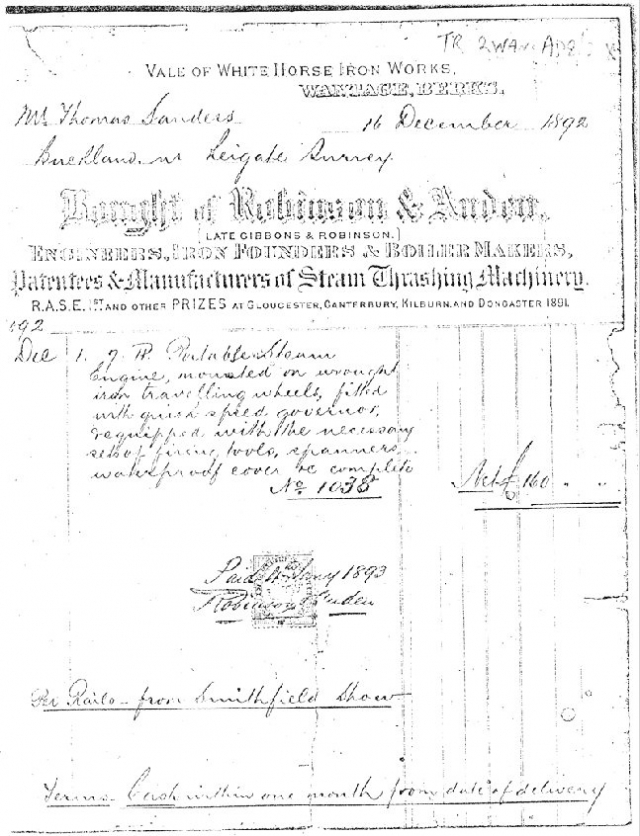 TR 2WAN
VALE OF WHITE HORSE IRON WORKS,
WANTAGE, BERKS.
Mr Thomas Sanders 16 December 1892
Buckland nr Reigate Surrey
Bought of Robinson & Auden,
(LATE GIBBONS & ROBINSON.)
ENGINEERS, IRON FOUNDERS & BOILER MAKERS,
Patentees & Manufacturers of Steam Thrashing Machinery.
R.A.S.E. 1ST AND OTHER PRIZES AT GLOUCESTER, CANTERBURY, KILBURN, AND DONCASTER 1891.
192
Dec 1. 7 HP Portable Steam
Engine, mounted on wrought
iron travelling wheels, fitted
with quick speed governor,
& equipped with the necessary
sets of firing tools, spanners
waterproof cover &c complete
No 1038 Net £ 160 " "
Paid 4 Jany 1893
Robinson & Auden
Per Rails - from Smithfield Show
Terms Cash within one month from date of delivery